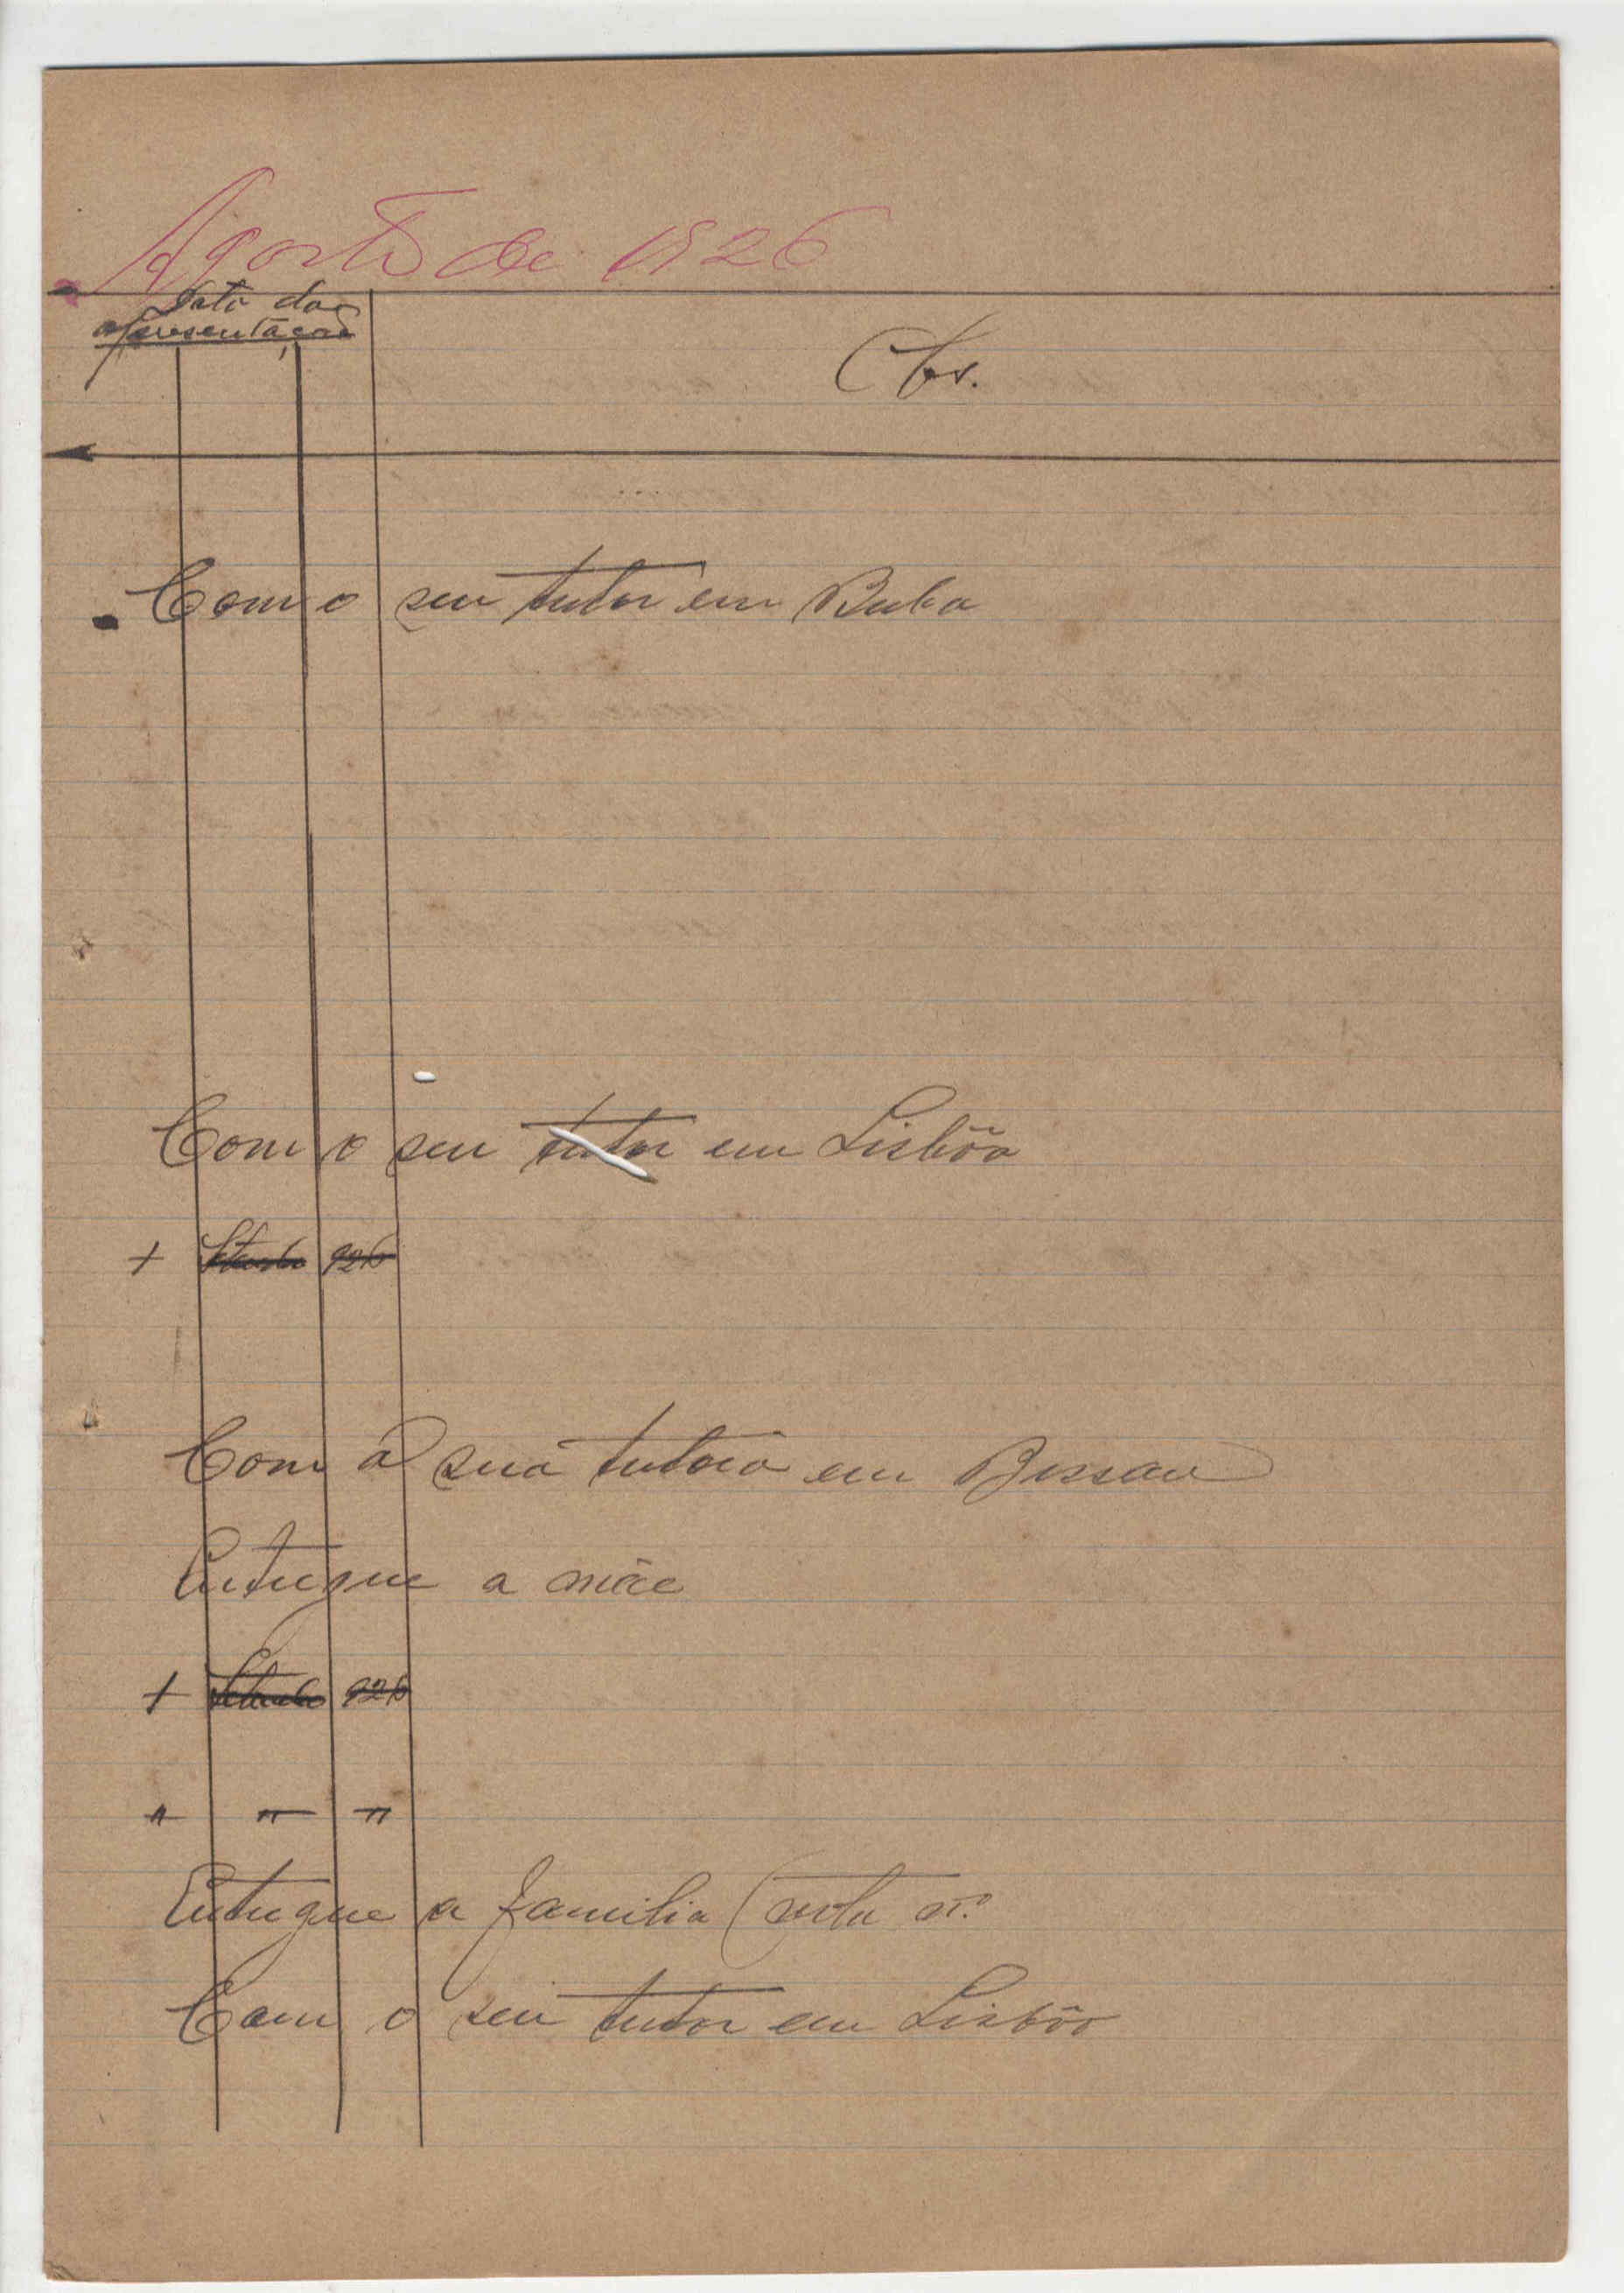 Agosto de 1926
Data das
apresentações
Obs.
Com o seu tutor em Buba
Com o seu tutor em Lisbôa
+ Setembro 926
Com a sua tutora em Bissau
Entregue a mãe
+ Setembro 926
" " "
Entregue a familia (nota nº
Com o seu tutor em Lisbôa